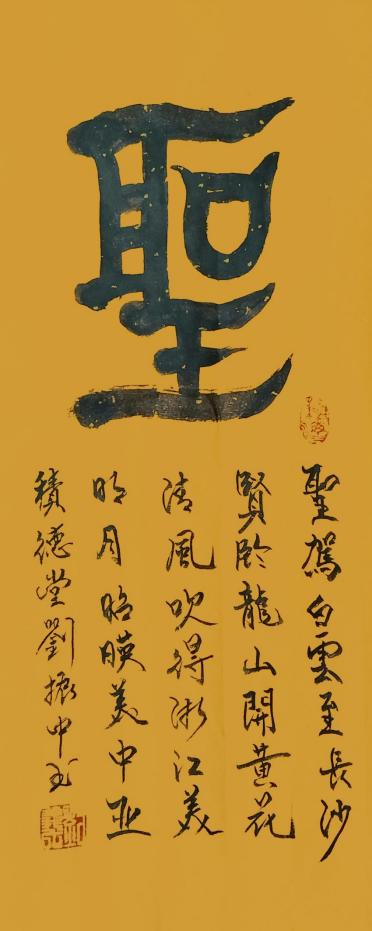 聖
聖駕白雲至長沙
賢臨龍山開黃花
清風吹得浙江美
明月昭暎美中亚
積德堂劉振中书